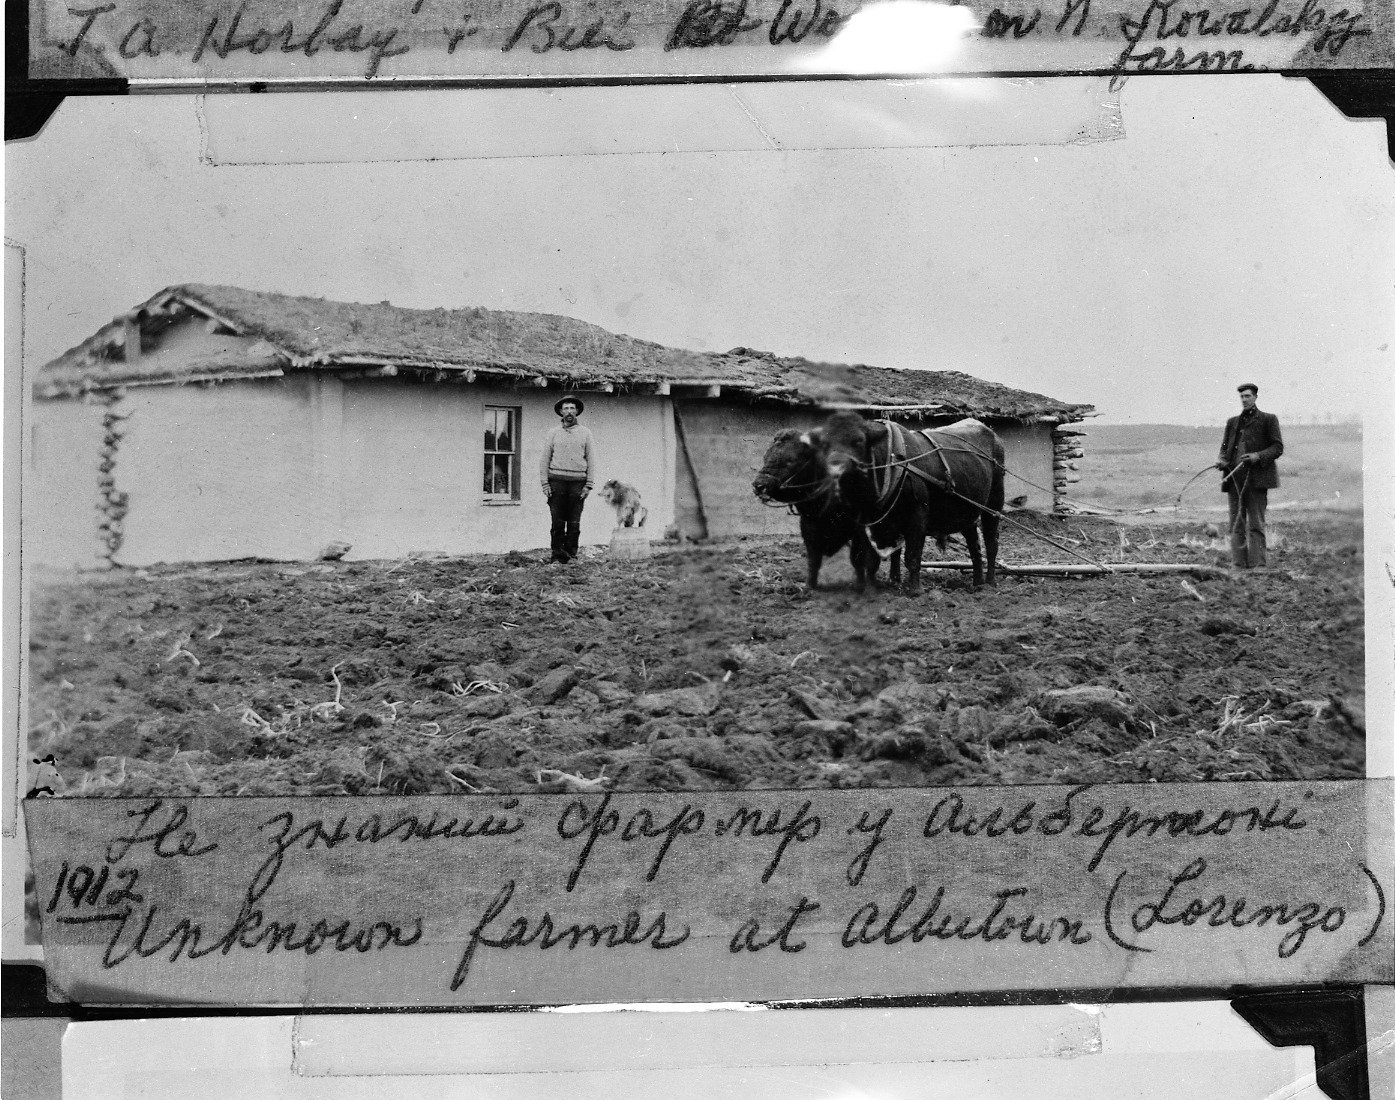 T. A. Horbay & Bill on N. Kowalsky
farm.
Не знаний фармер у Альбертоні
1912
Unknown farmer at Albertown (Lorenzo)